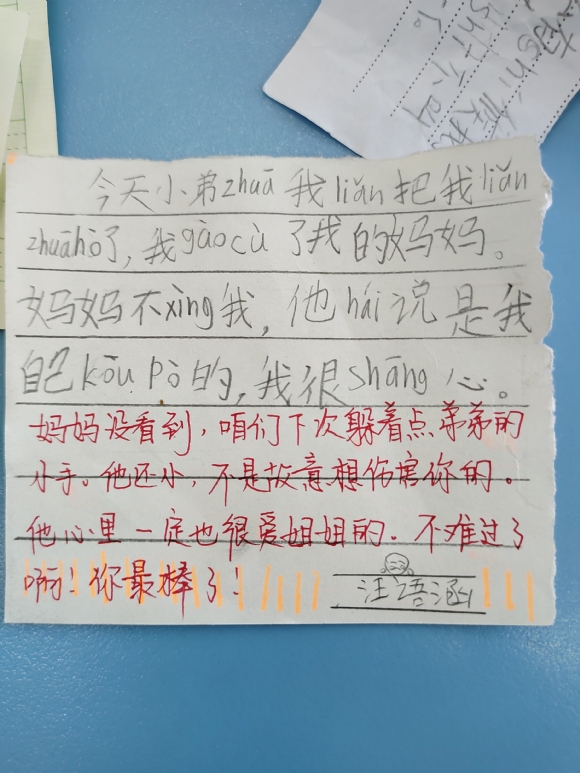 今天小弟zhuā我liǎn把我liǎn
zhuāhò了,我gàocù了我的妈妈。
妈妈不xìng我,他hái说是我
自己kōu pò的,我很shāng心。
妈妈没看到,咱们下次躲着点弟弟的
小手。他还小,不是故意想伤害你的。
他心里一定也很爱姐姐的。不难过了
啊!你最棒了!
汪语涵